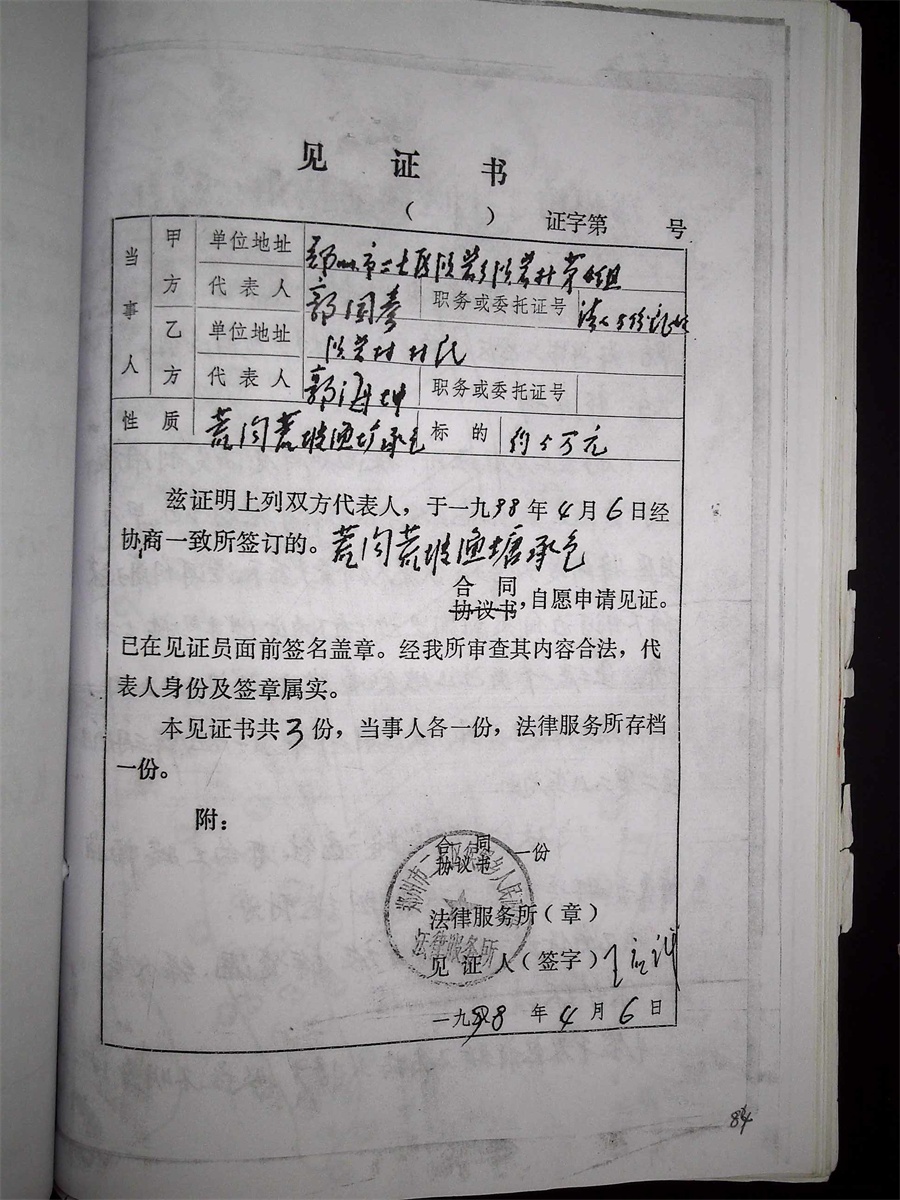 见证书
（ ）证字第 号
当事人 甲方 单位地址 郑州市二七区侯寨乡侯寨村第 组
代表人 郭国奉 职务或委托证号
乙方 单位地址 侯寨村村民
代表人 郭海坤 职务或委托证号
性质 荒沟荒坡渔塘承包 标的 约5万元
兹证明上列双方代表人，于一九98年4月6日经
协商一致所签订的。荒沟荒坡渔塘承包
合同
协议书，自愿申请见证。
已在见证员面前签名盖章。经我所审查其内容合法，代
表人身份及签章属实。
本见证书共3份，当事人各一份，法律服务所存档
一份。
附：
合同
协议书 一份
郑州市二七区侯寨乡人民政府
法律服务所（章）
法律服务所
见证人（签字）
一九98年4月6日
84